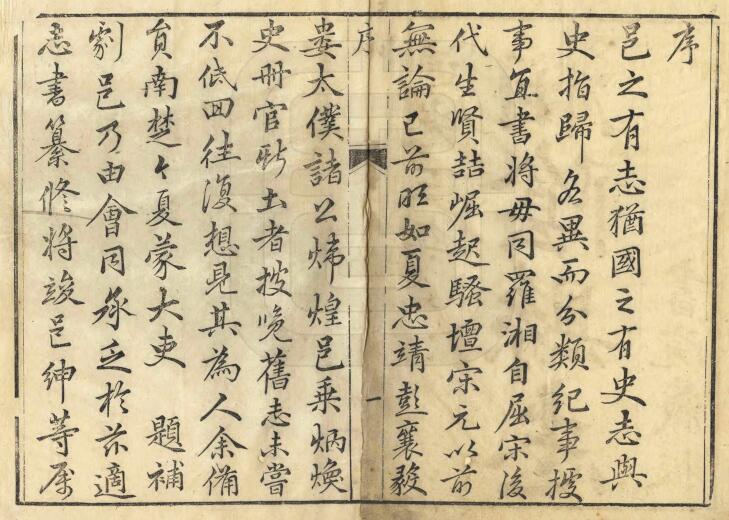 序
邑之有志猶國之有史志與
史指歸各異而分類紀事援
事直書將毋同羅湘自屈宋後
代生賢喆崛起騷壇宋元以前
無論已前明如夏忠靖彭襄毅
序
一
婁太僕諸公煒煌邑乘炳煥
史冊官斯土者披覽舊志未嘗
不低回往復想見其為人余備
員南楚〻夏蒙大吏 題補
劇邑乃由會同承乏於茲適
志書纂修將竣邑紳等屬